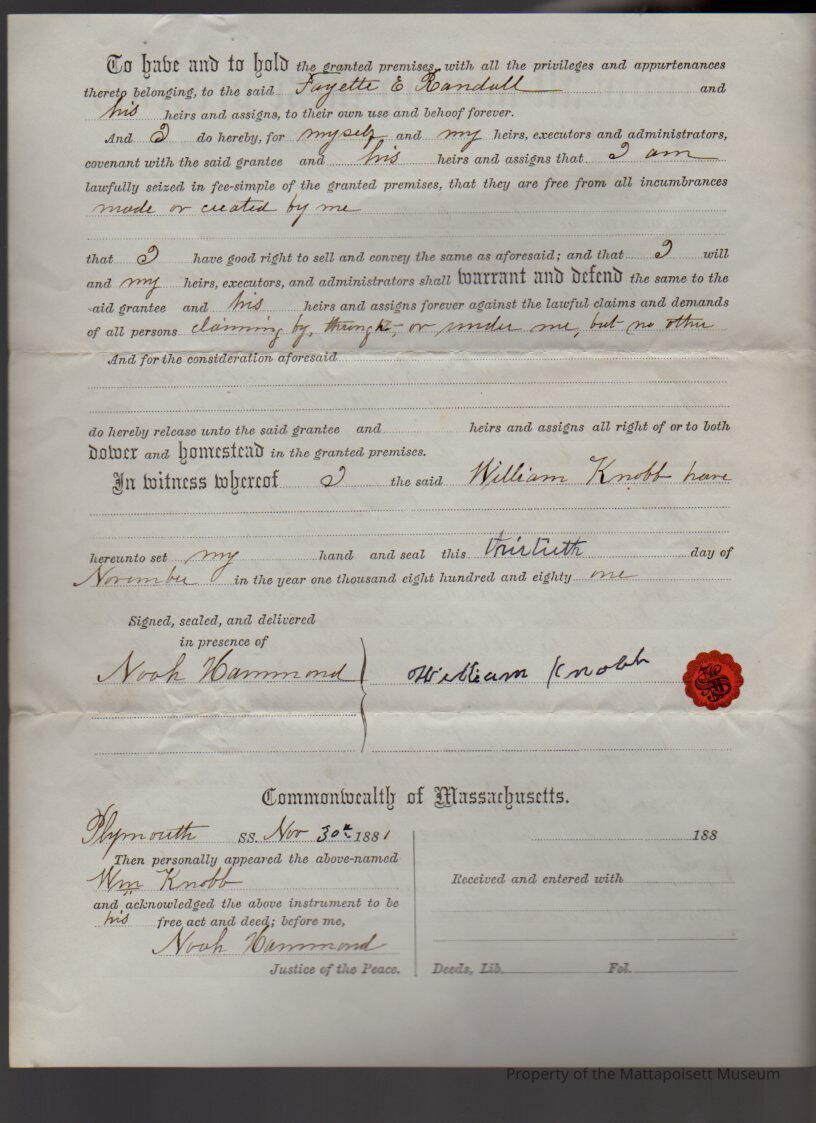 To have and to hold the granted premises, with all the privileges and appurtenances
thereto belonging, to the said Fayette E Randall and
his heirs and assigns, to their own use and behoof forever.
And I do hereby, for myself and my heirs, executors and administrators,
covenant with the said grantee and his heirs and assigns that I am
lawfully seized in fee-simple of the granted premises, that they are free from all incumbrances
made or created by me
that I have good right to sell and convey the same as aforesaid; and that I will
and my heirs, executors, and administrators shall warrant and defend the same to the
said grantee and his heirs and assigns forever against the lawful claims and demands
of all persons claiming by, through, or under me, but no other
And for the consideration aforesaid
do hereby release unto the said grantee and heirs and assigns all right of or to both
dower and homestead in the granted premises.
In witness whereof I the said William Knobb have
hereunto set my hand and seal this thirtieth day of
November in the year one thousand eight hundred and eighty one
Signed, sealed, and delivered
in presence of
Noah Hammond William Knobb
Commonwealth of Massachusetts.
Plymouth SS. Nov 30th. 1881
Then personally appeared the above-named
Wm Knobb
and acknowledged the above instrument to be
his free act and deed; before me,
Noah Hammond
Justice of the Peace.
188
Received and entered with
Deeds, Lib. Fol.
Property of the Mattapoisett Museum